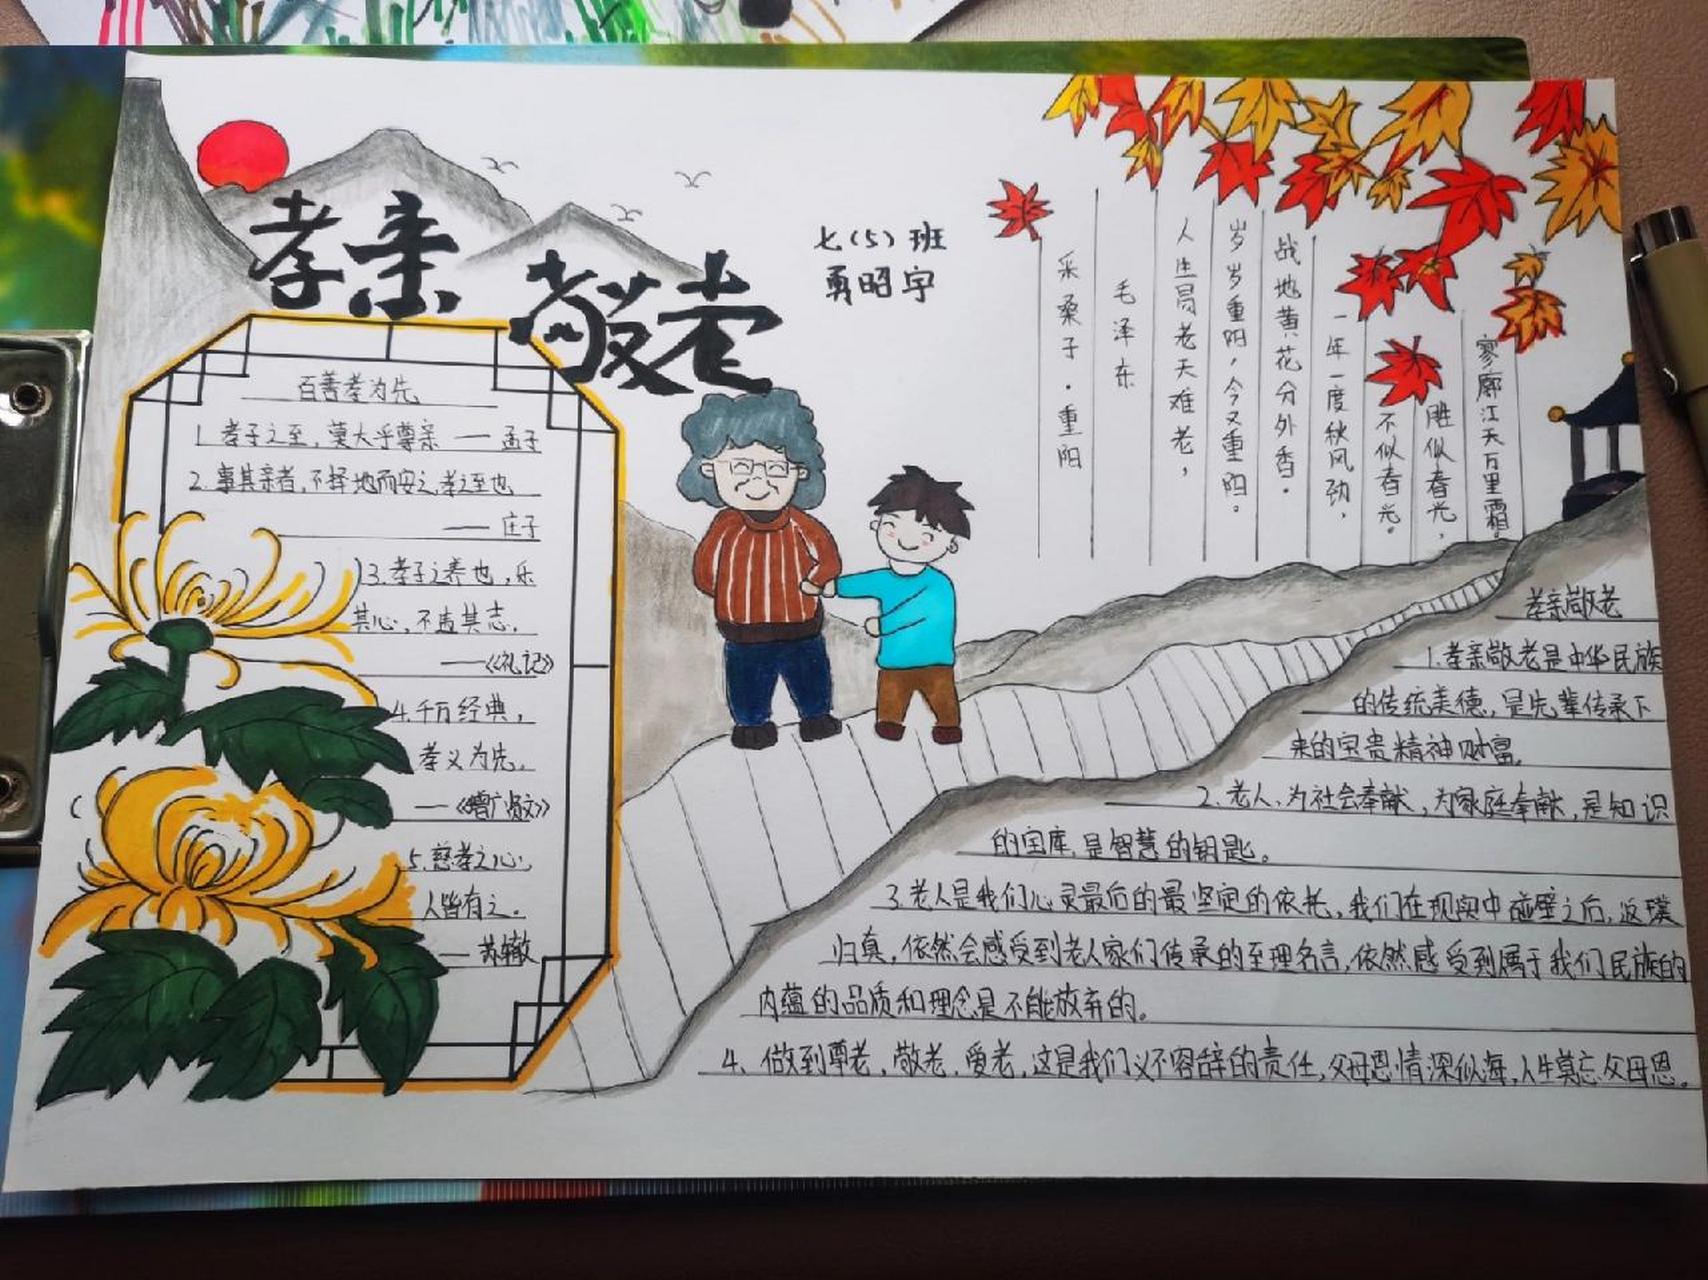 孝亲
敬老
七(5)班
勇昭宇
百善孝为先
1.孝子之至,莫大乎尊亲——孟子
2.事其亲者,不择地而安之,孝之至也
——庄子
3.孝子之养也,乐
其心,不违其志.
——《礼记》
4.千万经典,
孝义为先.
——《增广贤文》
5.慈孝之心,
人皆有之.
——苏辙
采桑子·重阳
毛泽东
人生易老天难老,
岁岁重阳,今又重阳。
战地黄花分外香.
一年一度秋风劲,
不似春光。
胜似春光,
寥廓江天万里霜。
孝亲敬老
1.孝亲敬老是中华民族
的传统美德,是先辈传承下
来的宝贵精神财富,
2.老人,为社会奉献,为家庭奉献,是知识
的宝库,是智慧的钥匙。
3.老人是我们心灵最后的最坚定的依托,我们在现实中碰壁之后,返璞
归真,依然会感受到老人家们传承的至理名言,依然感受到属于我们民族的
内蕴的品质和理念是不能放弃的。
4、做到尊老,敬老,爱老,这是我们义不容辞的责任,父母恩情深似海,人生莫忘父母恩。